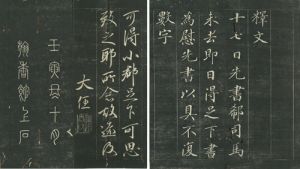 釋文
十七日先書郗司馬
未去即日得足下書
為慰先書以具不復
數字
可得小郡足下可思
致之耶所念故遠及
大
壬寅十月
上石